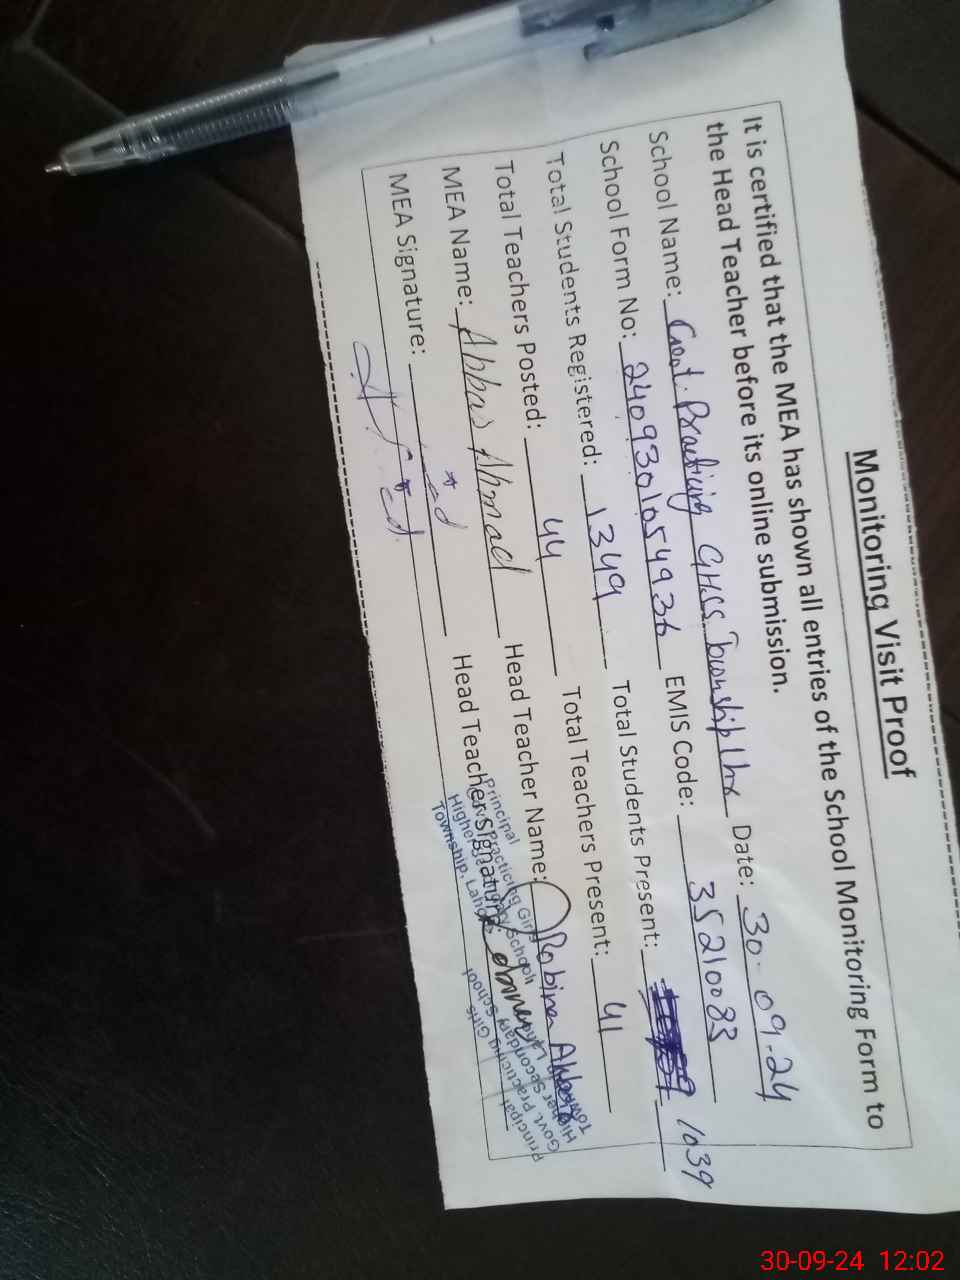 Monitoring Visit Proof
It is certified that the MEA has shown all entries of the School Monitoring Form to
the Head Teacher before its online submission.
School Name: Govt. Practicing GHSS Township Lhr Date: 30-09-24
School Form No: 2409301054936 EMIS Code: 35210083
Total Students Registered: 1349 Total Students Present: 1039
Total Teachers Posted: 44 Total Teachers Present: 41
MEA Name: Abbas Ahmad Head Teacher Name: Robina
MEA Signature: Head Teacher Signature:
Principal
Govt. Practicing Girls
Higher Secondary School
Township, Lahore
Principal
Govt. Practicing Girls
Higher Secondary School
Township, Lahore
30-09-24 12:02